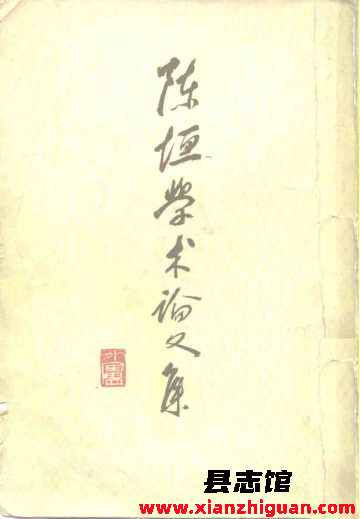 陈垣学术论文集
县志馆
www.xianzhiguan.com